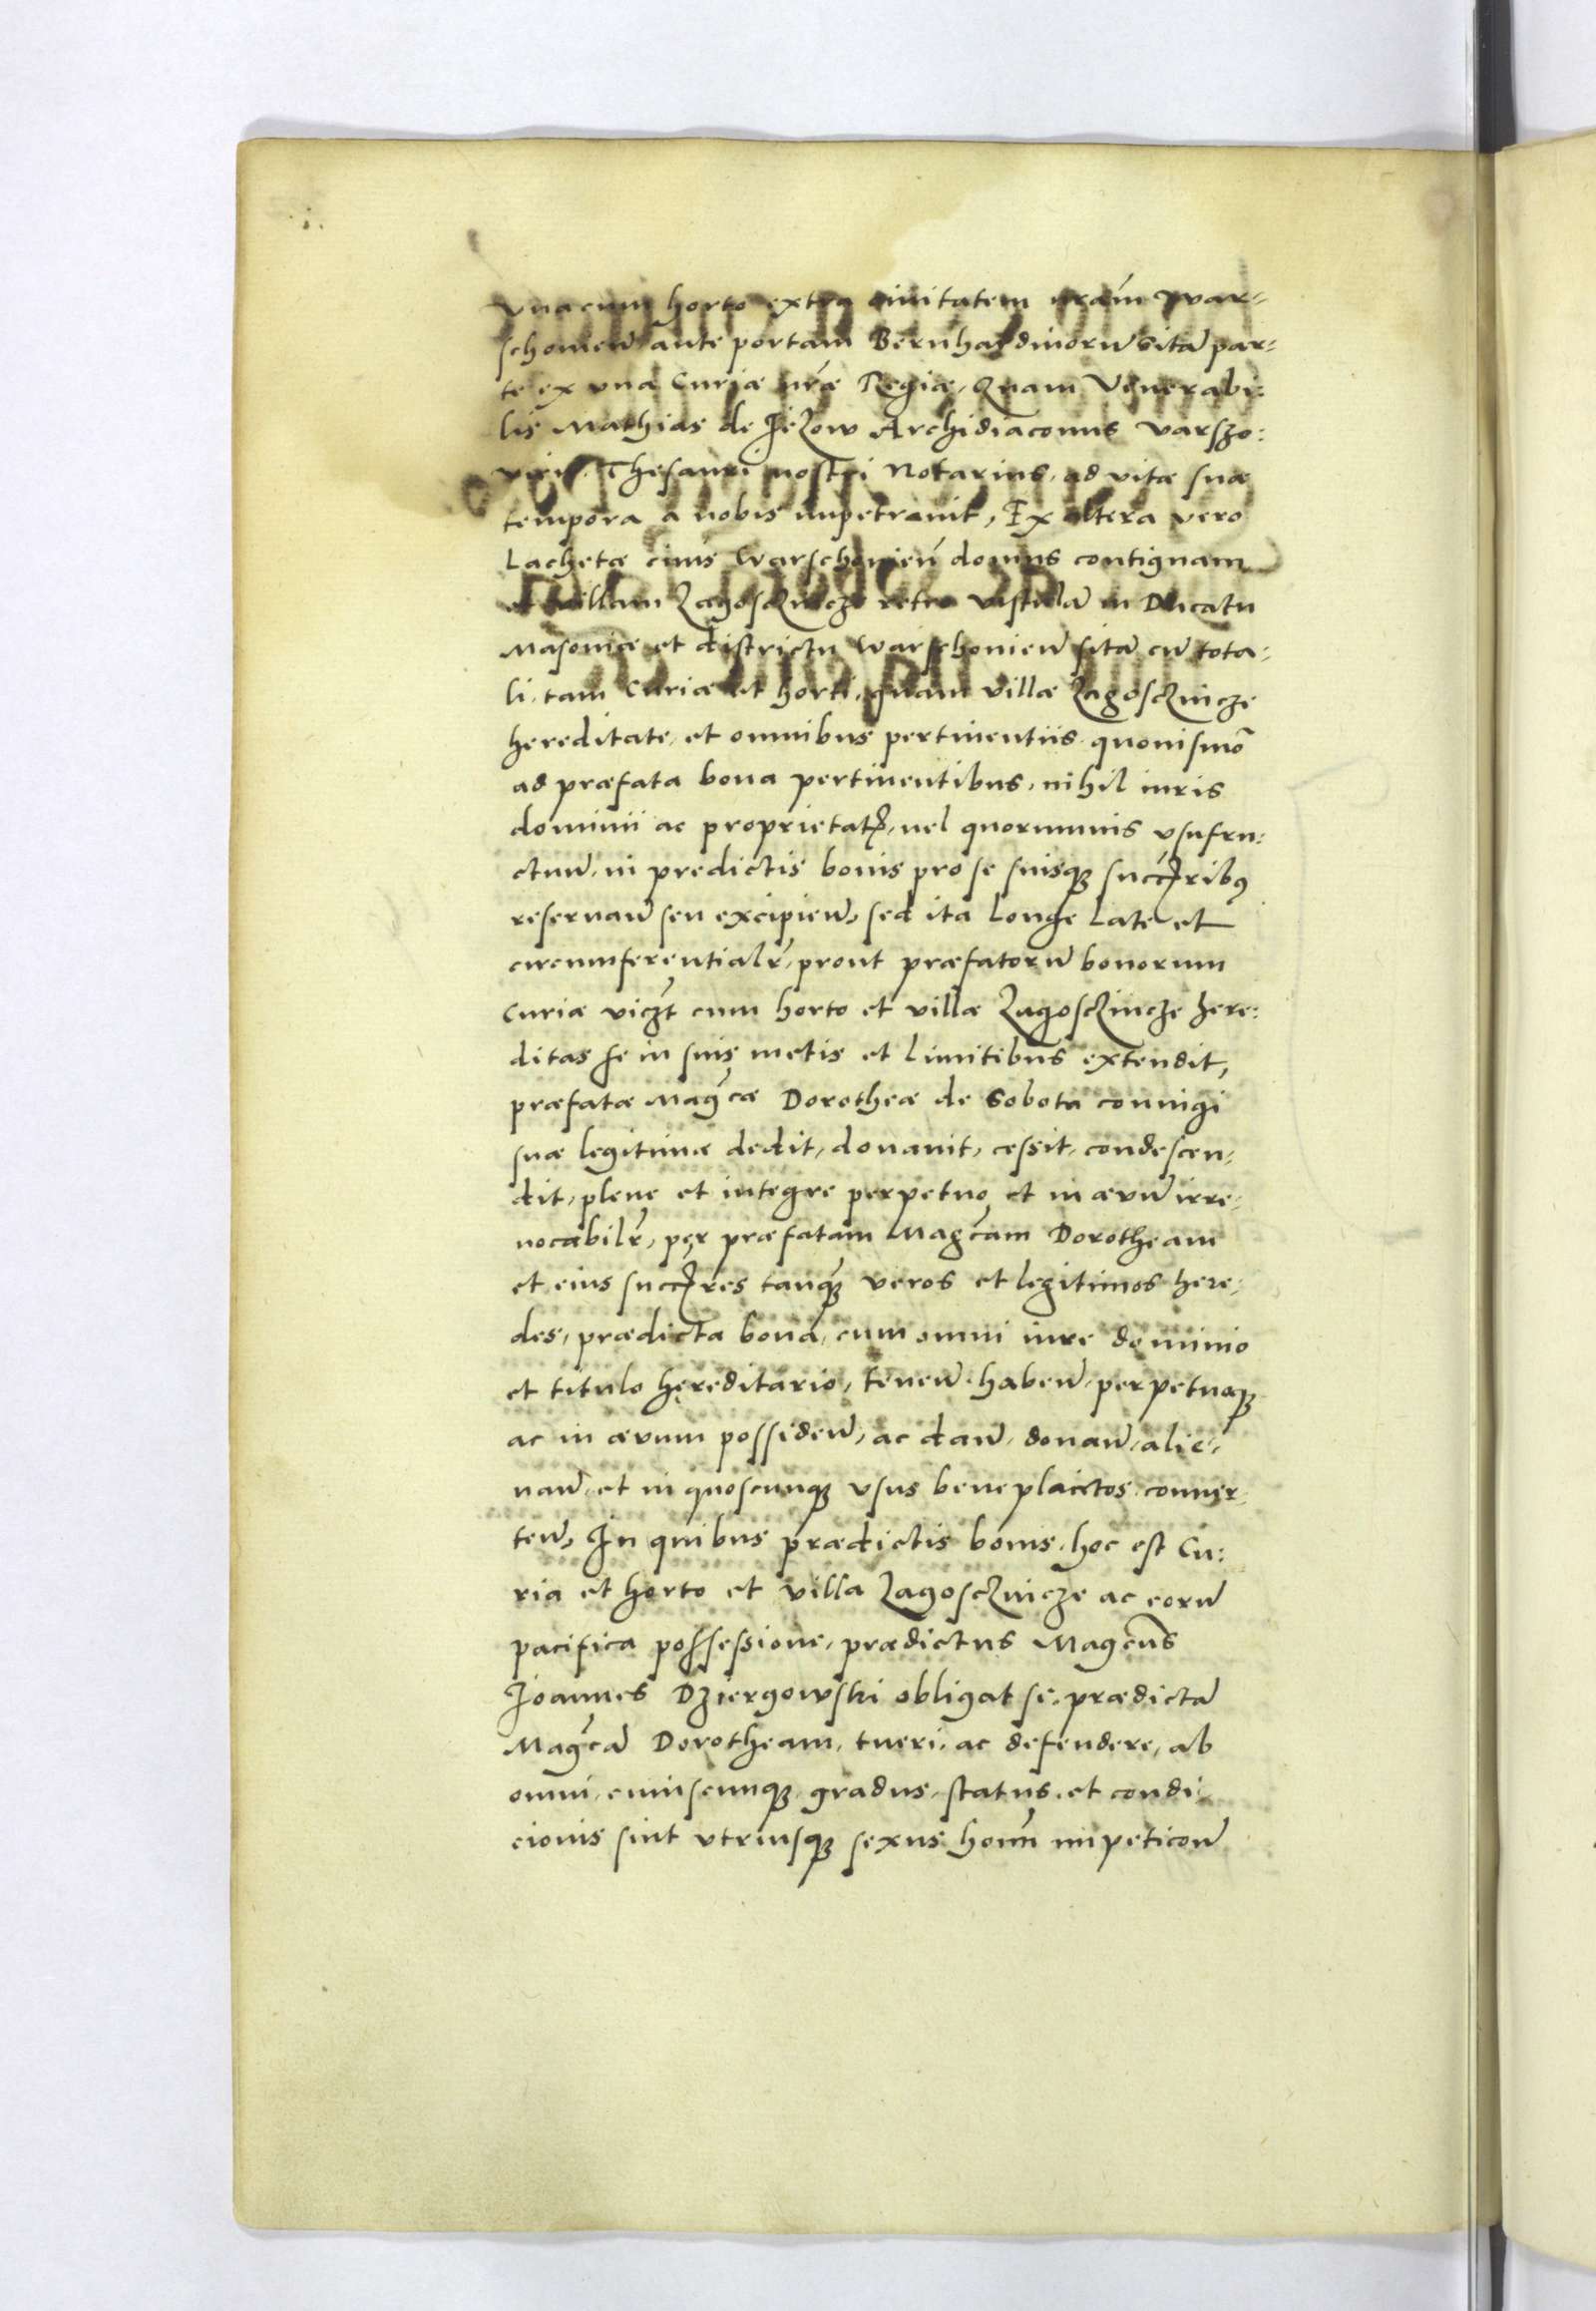 vnacum horto extra ciuitatem nram̄ War-
schonien̄ ante portam Bernhardinorū sitā par-
te ex vna Curiæ nrǣ Regiæ, Quam Venerabi:
lis Mathias de Jeżow Archidiaconus Varszo:
Thesauri nostri Notarius, ad vitæ suæ
tempora a nobis impetrauit, Ex altera vero
Lachetæ ciuis Warschonien̄ domus contiguam
et villam Zagosczincze retro Vistulā in Ducatu
Masoniæ et districtu Warschonien̄ sitā cū tota-
li, tam Curiæ et horti, quam villæ Zagosczincze
hereditate, et omnibus pertinentiis quouismō
ad præfata bona pertinentibus, nihil iuris
dominii ac proprietatꝭ, uel quorumuis vsufru:
ctuū, in predictis bonis pro se suisqȝ succꝭribꝰ
reseruan̄ seu excipien̄, sed ita longe late et
circumferentialr̄, prout præfatorū bonorum
Curiæ viczt̄ cum horto et villæ Zagosczincze here:
ditas se in suis metis et limitibus extendit,
præfatæ Maḡcæ Dorotheæ de Sobota coniugi
suæ legitimæ dedit, donauit, cessit, condescen-
dit, plene et integre perpetuo et in æuū irre-
uocabilr̄, per præfatam Magc̄am Dorotheam
et eius succꝭres tanqȝ veros et legitimos here-
des, prædicta bona, cum omni iure dominio
et titulo hereditario, tenen̄ haben̄, perpetuoqȝ
ac in æuum possiden̄, ac dan̄, donan̄, alie-
nan̄, et in quoscunqȝ vsus beneplacitos conuer-
ten̄, In quibus prædictis bonis, hoc est Cu:
ria et horto et villa Zagosczincze ac eorū
pacifica possessione, prædictus Magcūs
Joannes Dziergowski obligat se, prædictā
Maḡcā Dorotheam, tueri, ac defendere, ab
omni, cuiuscunqȝ gradus, status, et condi-
cionis sint vtriusqȝ sexus hoīm impeticoū